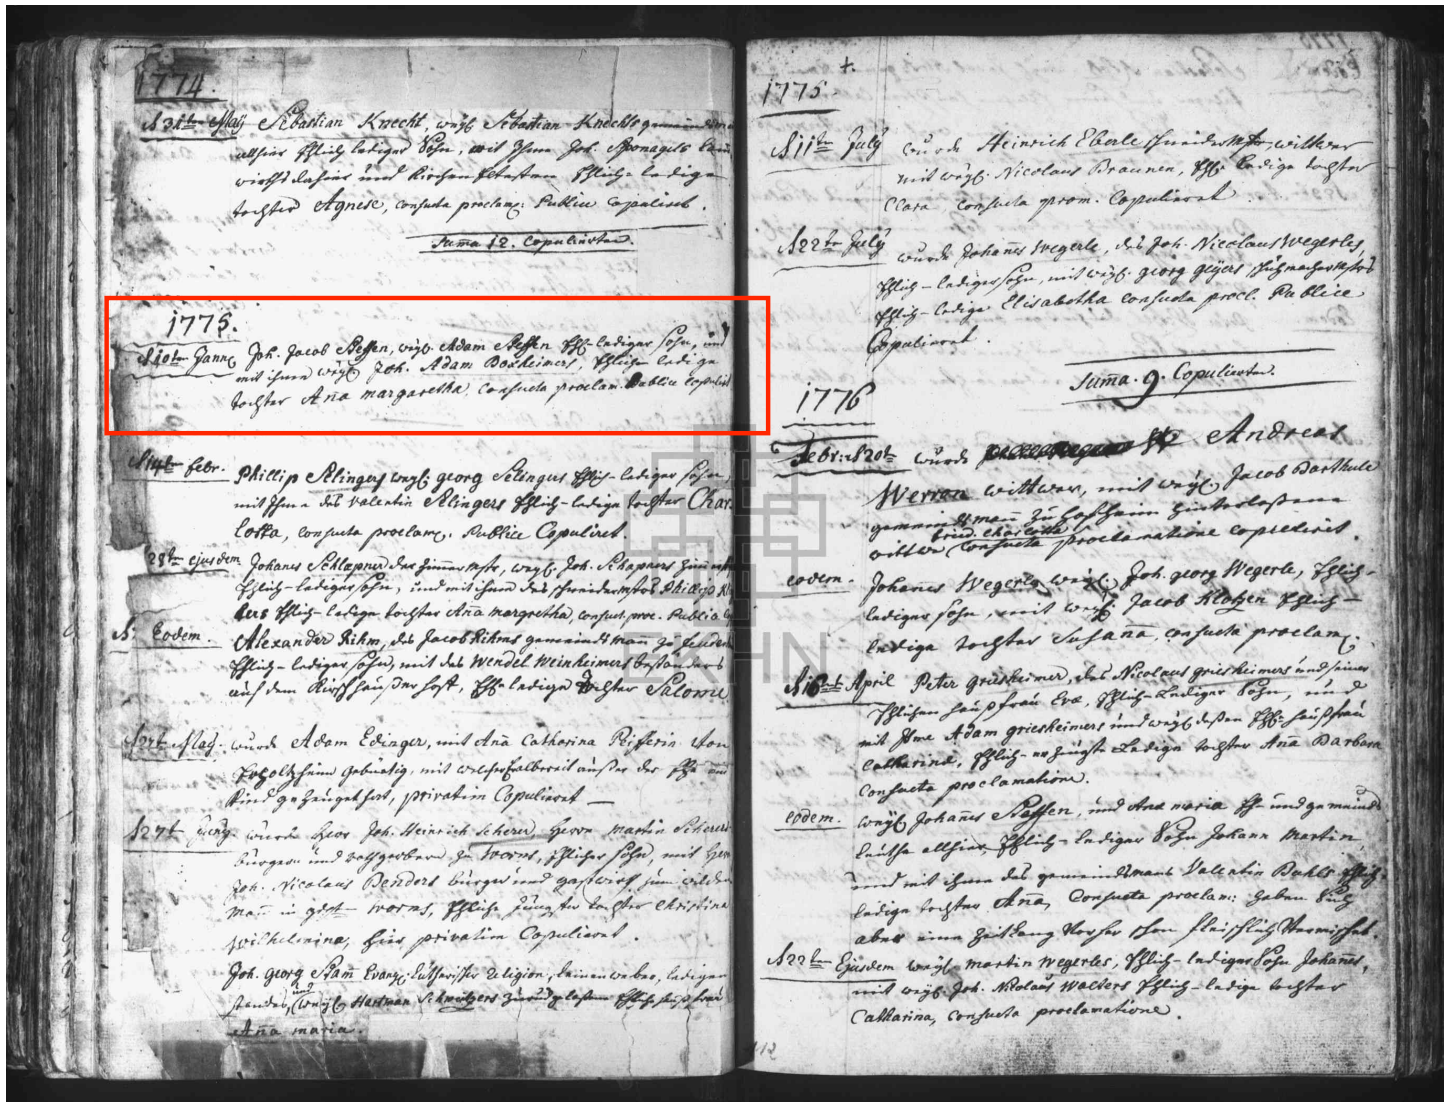 1774.
d 31ten May Sebastian Knecht, weyl. Sebastian Knechts gemeindsm
allhier Ehlich lediger Sohn, mit Ihme Joh. Sponagels
wirths dahier und Kirchen Eltesten Ehliche ledige
tochter Agnese, consueta proclam. Publice Copuliret.
Suma 12. Copulierten.
1775.
d 10ten Jann. Joh. Jacob Steffen, weyl. Adam Steffen Ehl-lediger Sohn, und
mit ihme weyl. Joh. Adam Boxheimers, Ehliche ledige
tochter Ana margaretha, consueta proclam. Publice Copulirt
d 14t febr. Phillip Selingers weyl. georg Selingers Ehlich-lediger Sohn,
mit Ihme des Valentin Selingers Ehlich-ledige tochter Char-
lotta, consueta proclam. Publice Copuliret.
28ten ejusdem Johanes der Zimmermstr, weyl. Joh.
Ehlich-lediger Sohn, und mit ihme des schneidermstrs Phillip
Ehlich-ledige tochter Ana margretha, consuet. pro. Publice
d. Eodem. Alexander Rihm, des Jacob Rihms gemeindsman zu
Ehlich-lediger Sohn, mit des Wendel Weinheimers bestanders
auf dem Kirschhaußer hoff, Ehl-ledige tochter Salome
May. wurde Adam Edinger, mit Ana Catharina Peifferin von
gebürtig, mit welcher allbereit außer der Ehe ein
Kind gezeuget hat, privatim Copulieret —
d 27t wurde Herr Joh. Heinrich Scherer, Herrn martin Scherers
bürgers und rothgerbers zu Worms, Ehlicher Sohn, mit Herrn
Joh. Nicolaus Benders bürger und gastwirth zum wilden
Man in Worms, Ehliche jüngster tochter Christina
Wilhelmina, hier, privatim Copulieret.
Joh. georg Stam Evang. Lutherischer religion, leinenweber, ledigen
standes, und weyl. Hartman Schweitzers Ehliche haußfrau
Ana maria.
1775.
d 11ten July wurde Heinrich Eberle schneidermstr, wittwer
mit weyl. Nicolaus Braunen, Ehl. ledige tochter
Clara, consueta prom. Copulieret
d 22ten July wurde Johanes Wegerle, des Joh. Nicolaus Wegerles,
Ehlich-lediger Sohn, mit weyl. georg geyers schuhmachermstrs
Ehlich-ledige Elisabetha consueta procl. Publice
Copulieret.
Suma. 9. Copulierten.
1776
Febr: d 20t wurde Andreas
Werron wittwer, mit weyl. Jacob Barthule
gemeindsman zu hinterlaßene
wittwe consueta proclamatione copulieret.
charlotta
eodem. Johanes Wegerle, weyl. Joh. georg Wegerle, Ehlich-
lediger Sohn, mit weyl. Jacob Klotzen Ehlich-
ledige tochter Susana, consueta proclam.
d 16ten April Peter griesheimer, des Nicolaus griesheimers und seiner
Ehlichen haußfrau Eva, Ehlich-lediger Sohn, und
mit Ihme Adam griesheimers und weyl. deßen Ehl. haußfrau
Catharina, Ehlich-erzeugte ledige tochter Ana Barbara
Consueta proclamatione.
eodem. weyl. Johanes Steffen, und Ana maria Eh- und gemeinds
leuthe allhier, Ehlich-lediger Sohn Johann Martin,
und mit ihme des gemeindsmans Valentin Bahls Ehlich-
ledige tochter Ana, Consueta proclam: haben sich
aber eine Zeitlang vorher schon fleischlich vermischet.
d 22ten Ejusdem weyl. martin Wegerles, Ehlich-lediger Sohn Johanes,
mit weyl. Joh. Nicolaus Walters Ehlich-ledige tochter
Catharina, consueta proclamatione.
112
EKHN